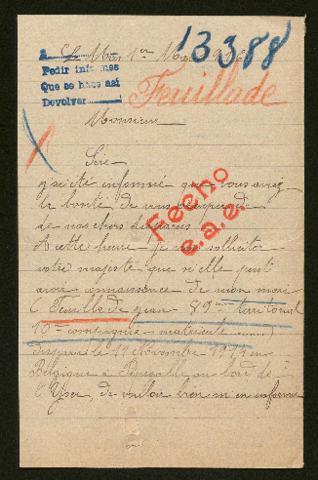 13388
Le Mans 1er Mars 1916
Pedir informes
Que se hace asi
Devolver
Feuillade
Monsieur
Sire
j'ai été informée que vous avez
la bonté de vous occuper
de nos chers disparus
A cette heure je viens solliciter
votre majesté que si elle peut
avoir connaissance de mon mari
Feuillade 89me territorial
10me compagnie matricule
disparu le 11 Novembre 1914 en
Belgique à au bord de
l'Yser, de vouloir bien m'en informer
Fecho
e.a.e.